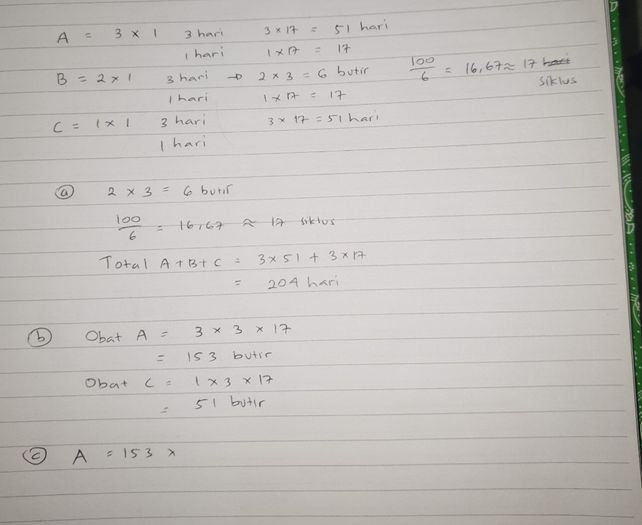 A = 3 x 1 3 hari 3 x 17 = 51 hari
1 hari 1 x 17 = 17
B = 2 x 1 3 hari → 2 x 3 = 6 butir 100/6 = 16,67 ≈ 17 hari siklus
1 hari 1 x 17 = 17
C = 1 x 1 3 hari 3 x 17 = 51 hari
1 hari
(a) 2 x 3 = 6 butir
100/6 = 16,67 ≈ 17 siklus
Total A + B + C = 3 x 51 + 3 x 17
= 204 hari
(b) Obat A = 3 x 3 x 17
= 153 butir
Obat C = 1 x 3 x 17
= 51 butir
(c) A = 153 x